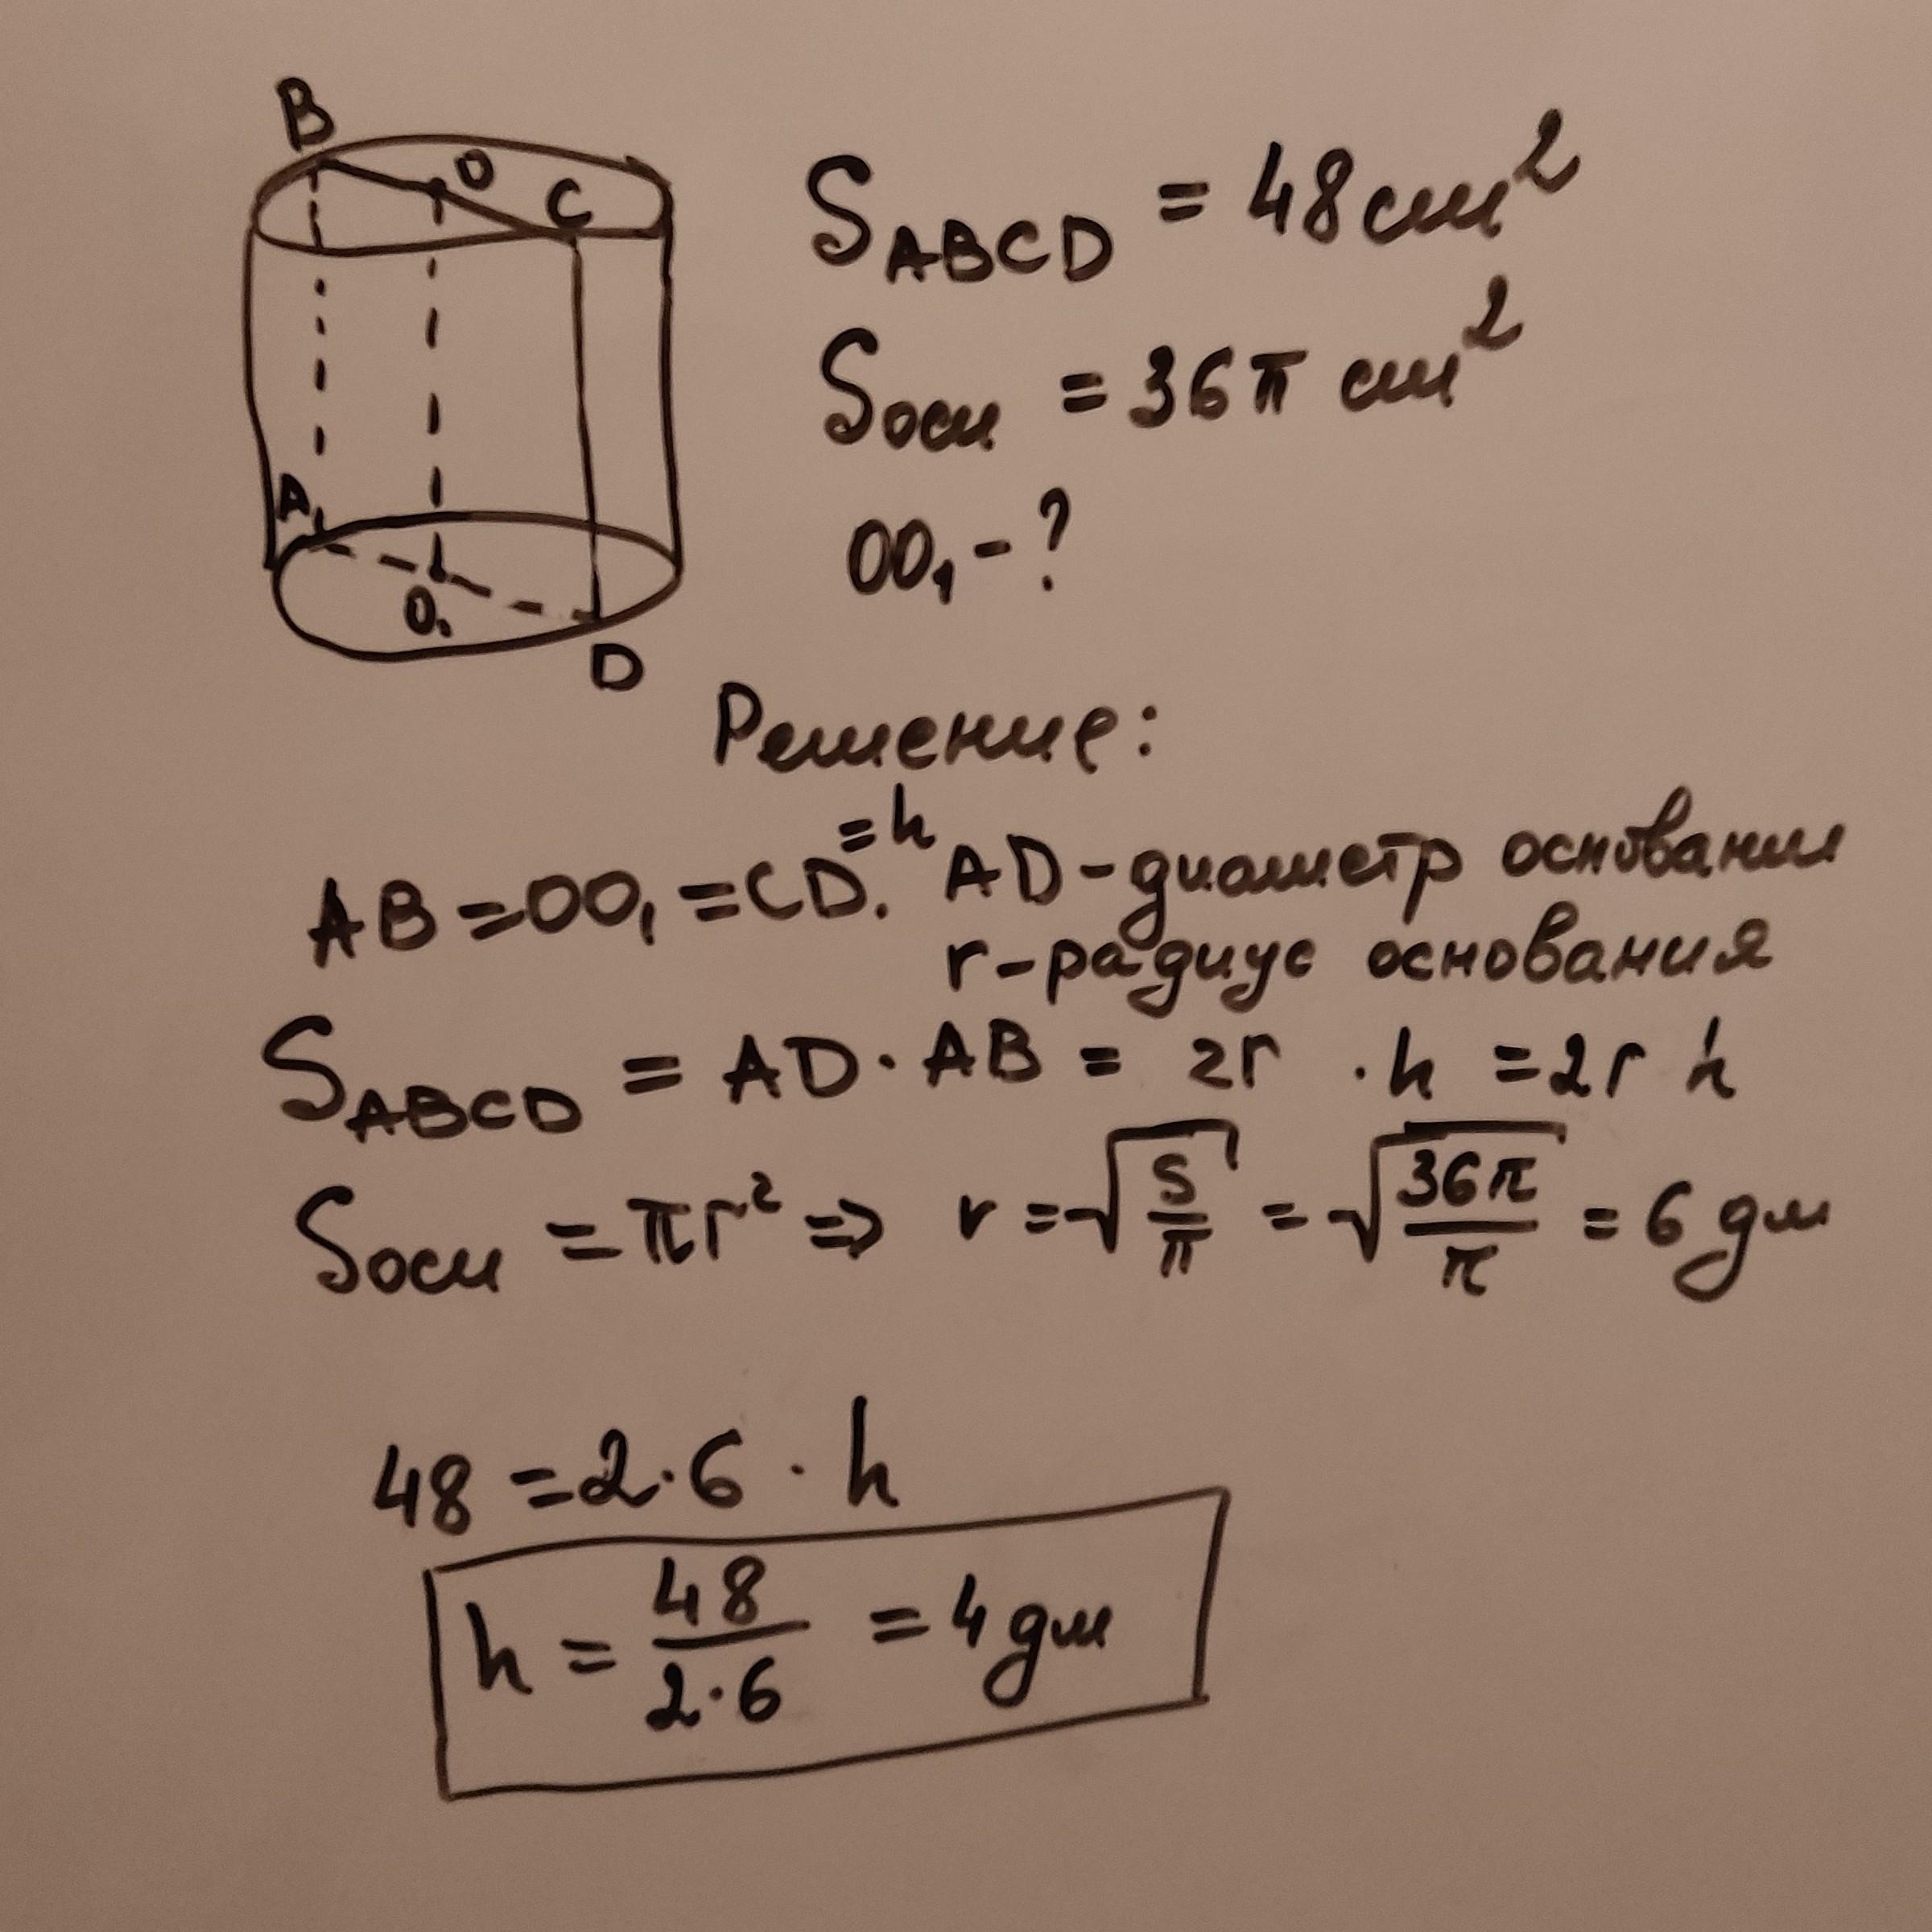 B
O
C
A₁
O₁
D
S_ABCD = 48 см²
S_осн = 36π см²
OO₁ - ?
Решение:
AB = OO₁ = CD. = h AD - диаметр основания
r - радиус основания
S_ABCD = AD · AB = 2r · h = 2r h
S_осн = πr² ⇒ r = √(S/π) = √(36π/π) = 6 дм
48 = 2·6 · h
h = 48/(2·6) = 4 дм